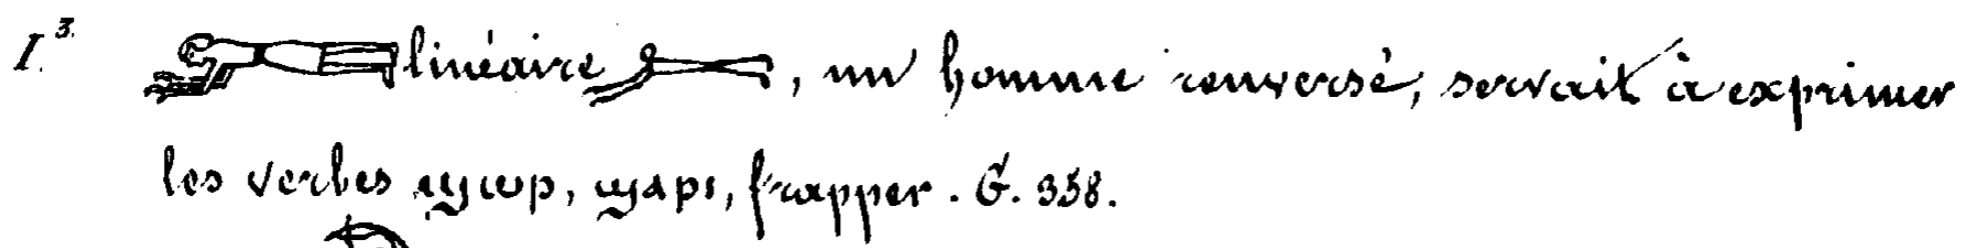 I.3. linéaire, un homme renversé, servait à exprimer
les verbes ϣⲱⲡ, ϣⲁⲣⲓ, frapper. G. 358.